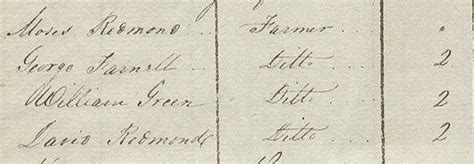 Moses Redmond .. Farmer . "
George Farnell .. Ditto .. 2
William Green Ditto .. 2
David Redmond Ditto .. 2